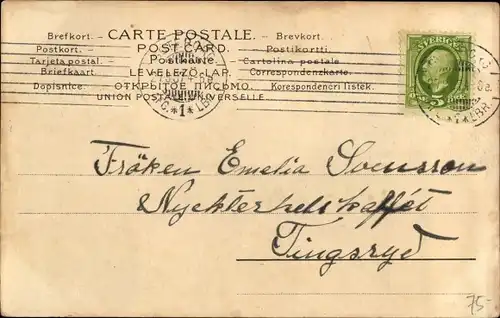 Brefkort. CARTE POSTALE. Brevkort.
Postkort. POST CARD. Postikortti.
Tarjeta postal. Postkarte Cartolina postale
Briefkaart. LEVELEZÖ-LAP. Correspondenzkarte.
Dopisnice. ОТКРЫТОЕ ПИСЬМО. Korespondencni listek.
UNION POSTALE UNIVERSELLE.
SVERIGE
5 5
1 LBR
Fröken Emelia Svensson
Nyckterhetskaffét
Tingsryd
75-